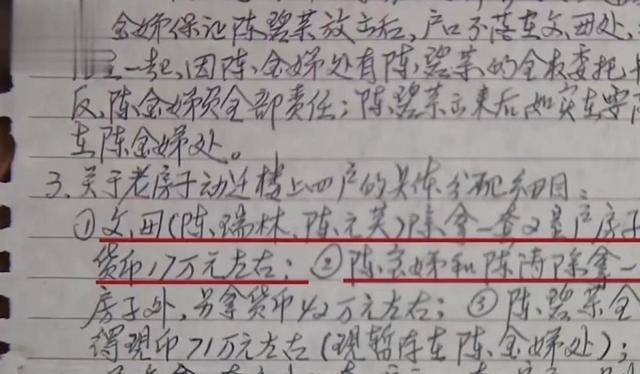 金娣保证陈碧菜放出后,户口不落在文、毌处,
一起,因陈、金娣处有陈、碧菜的全权委托
反,陈金娣负全部责任;陈碧菜出来后,如实在要
在陈金娣处。
3.关于老房子动迁楼上四户的具体分配细目:
①文、毌(陈、瑞林、陈、元英)除拿一套
货币17万元左右;②陈、宝娣和陈涛除拿一
房子外,另拿货币42万元左右;③陈、碧菜全
得现币71万元左右(现暂存在陈、金娣处);